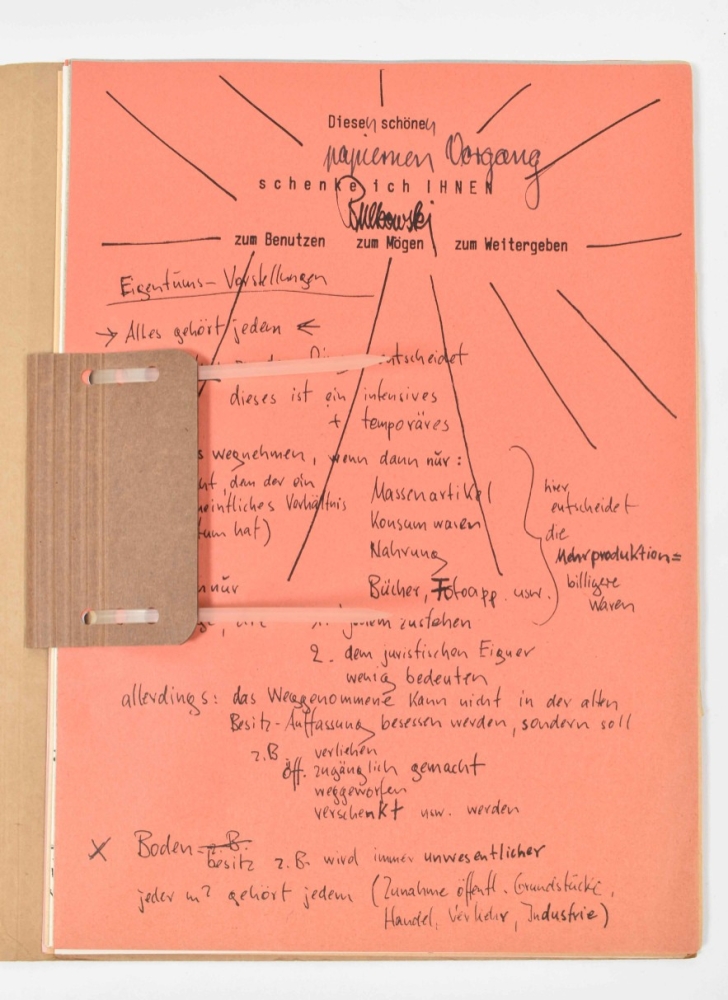 Diesen schönen
papiernen Vorgang
schenke ich IHNEN
Bulkowski
zum Benutzen zum Mögen zum Weitergeben
Eigentums-Vorstellungen
→ Alles gehört jedem ←
entscheidet
dieses ist ein intensives
+ temporäres
s wegnehmen, wenn dann nur:
nt, dem der ein
eintliches Verhältnis
tum hat)
Massenartikel
Konsum waren
Nahrung
Bücher, Fotoapp. usw.
hier
entscheidet
die
Mehrproduktion =
billigere
Waren
nur
jedem zustehen
2. dem juristischen Eigner
wenig bedeuten
allerdings: das Weggenommene kann nicht in der alten
Besitz-Auffassung besessen werden, sondern soll
z.B. verliehen
öff. zugänglich gemacht
weggeworfen
verschenkt usw. werden
X Boden-z.B.
besitz z.B. wird immer unwesentlicher
jeder m² gehört jedem (Zunahme öffentl. Grundstücke,
Handel, Verkehr, Industrie)